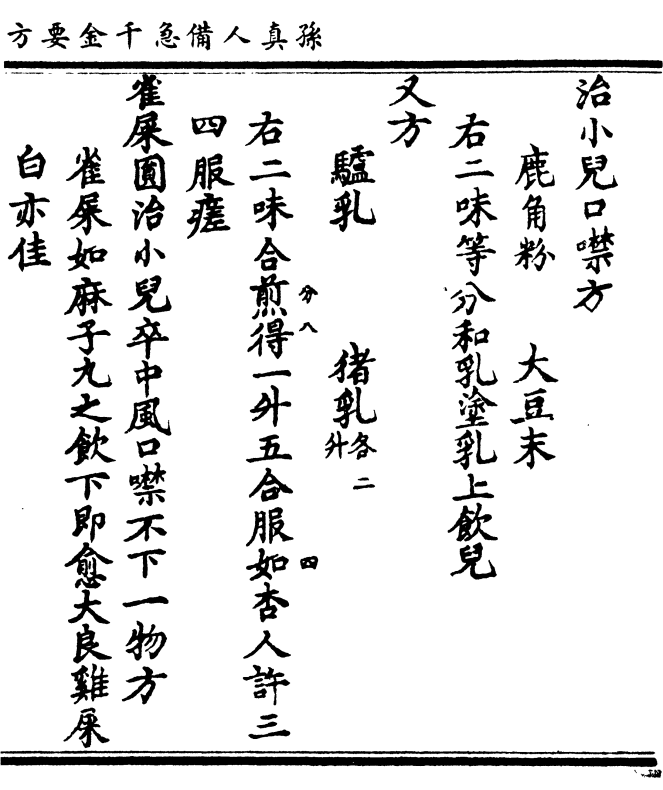 孫真人備急千金要方
治小兒口噤方
鹿角粉 大豆末
右二味等分和乳塗乳上飲兒
又方
驢乳 猪乳各二升
右二味合煎得一升五合服如杏人許三
分八
四
四服瘥
雀屎圓治小兒卒中風口噤不下一物方
雀屎如麻子丸之飲下即愈大良雞屎
白亦佳